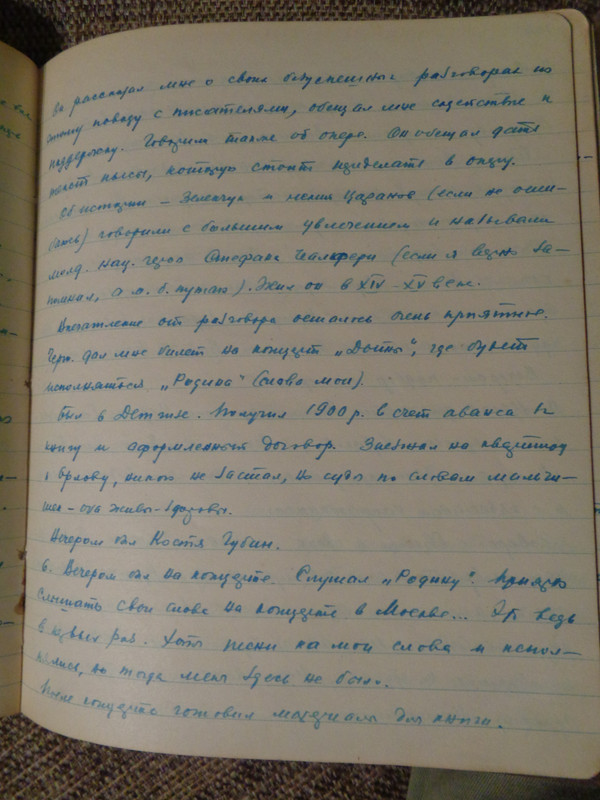 Он рассказал мне о своих безуспешных разговорах по
этому поводу с писателями, обещал мне содействие и
поддержку. Говорили также об опере. Он обещал дать
текст пьесы, которую стоит переделать в оперу.
Об истории – и некий Царанов (если не оши-
баюсь) говорили с большим увлечением и называли
молд. нац. героя Стефана (если я верно за-
помнил, а м. б. путаю). Жил он в XIV – XV веке.
Впечатление от разговора осталось очень приятное.
Черн. дал мне билет на концерт „Дойны“, где будет
исполняться „Родина“ (слова мои).
Был в Детгизе. Получил 1900 р. в счет аванса за
книгу и оформленный договор. Заезжал на квартиру
к Орлову, никого не застал, но судя по словам мальчи-
шек – оба живы-здоровы.
Вечером был Костя Губин.
6. Вечером был на концерте. Слушал „Родину“. Приятно
слышать свои слова на концерте в Москве... Это ведь
в первых раз. Хотя песни на мои слова и испол-
нялись, но тогда меня здесь не было.
После концерта готовил материалы для книги.